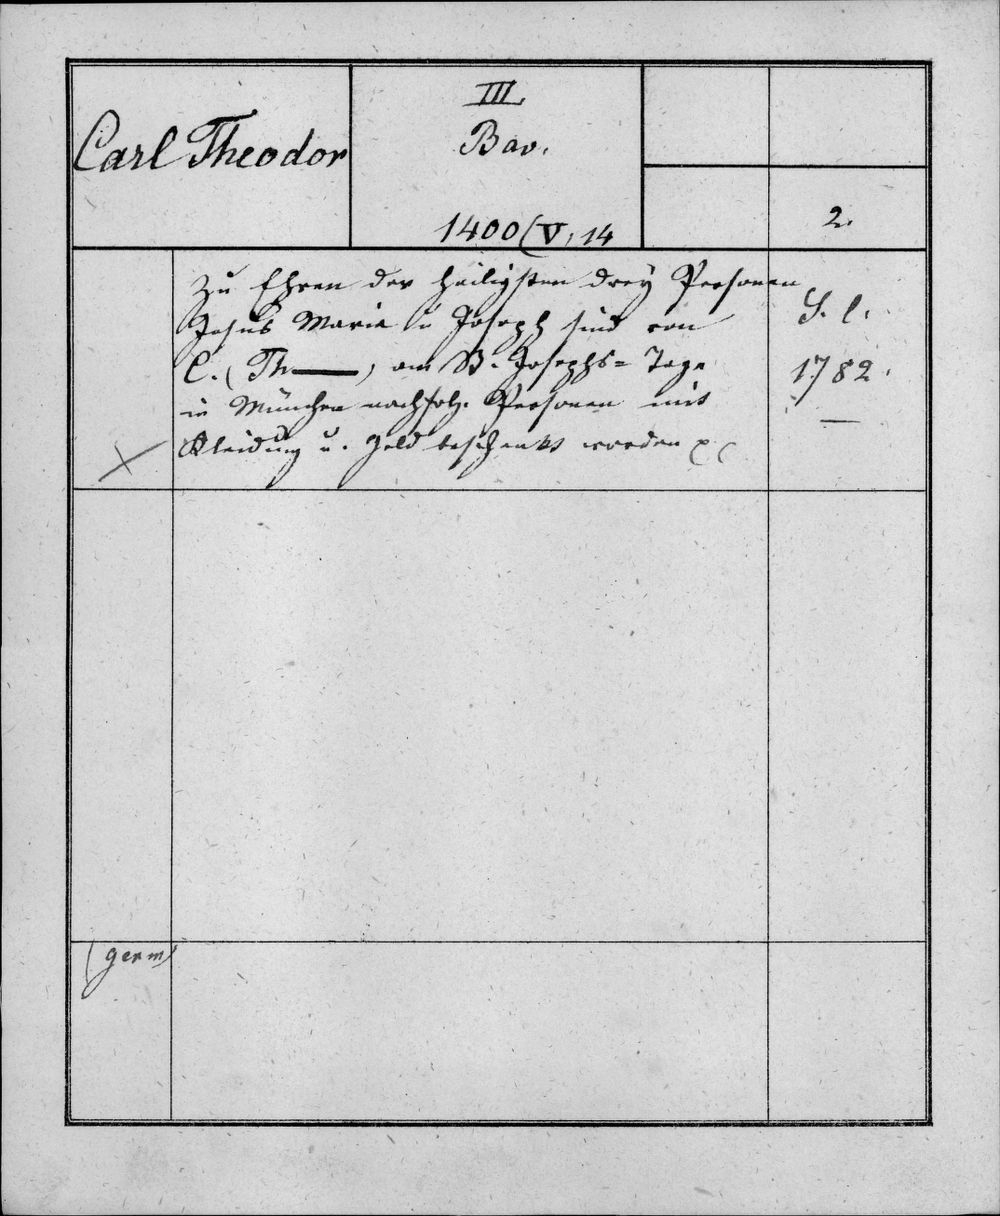 Carl Theodor
III.
Bav.
1400 (V, 14
2.
Zu Ehren der heiligsten drey Personen
Jesus Maria u Joseph sind von
C. (Th——) am St. Josephs= Tage
in München nachfolg. Personen mit
Kleidung u. Geld beschenkt worden
S. l.
1782.
(germ)